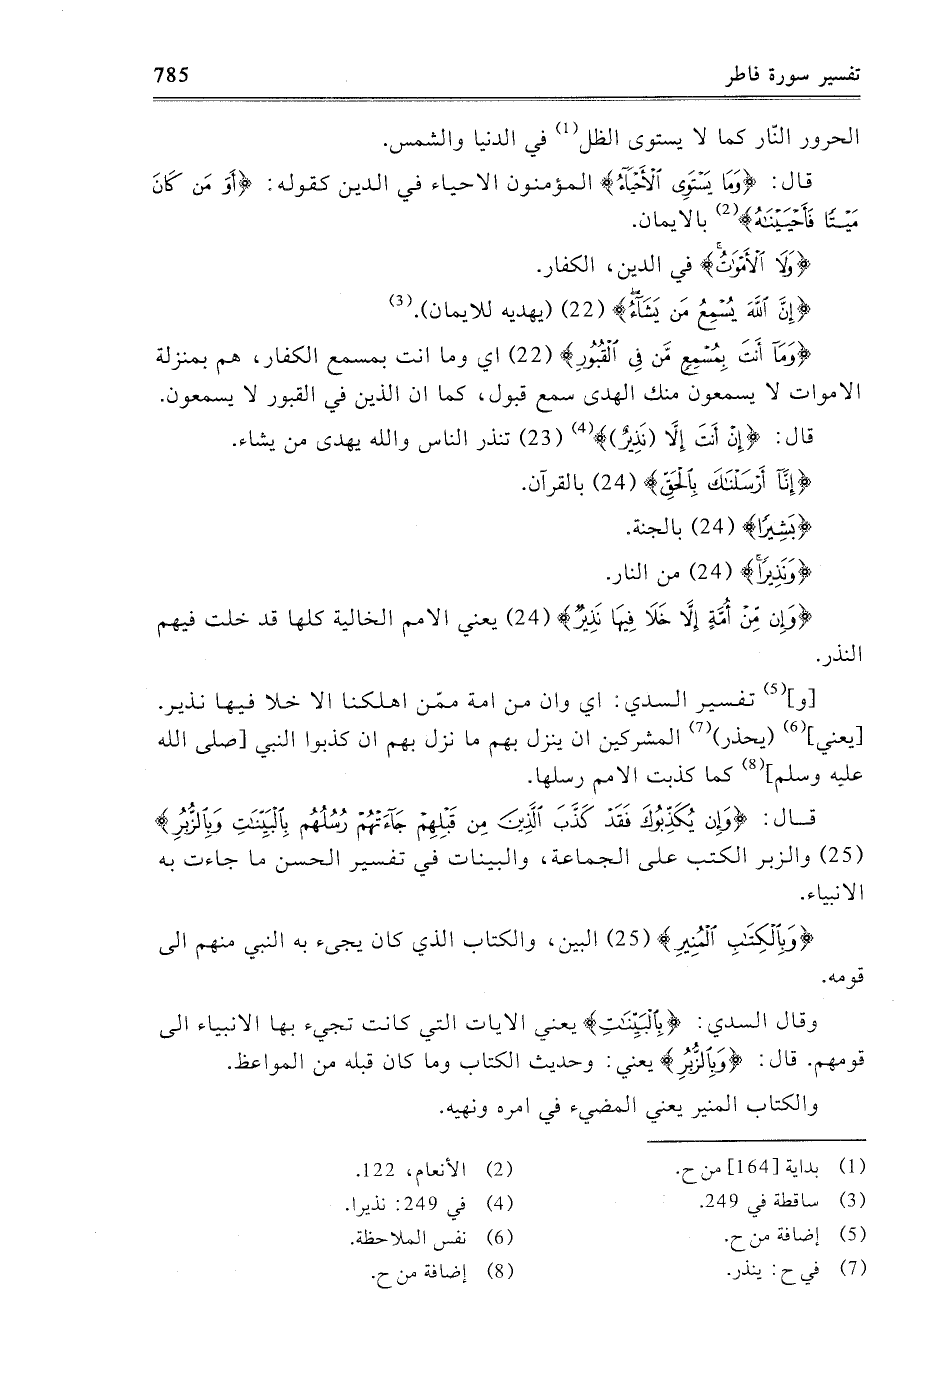 تفسير سورة فاطر 785
الحرور النّار كما لا يستوى الظل(1) في الدنيا والشمس.
قال: ﴿وَمَا يَسْتَوِى ٱلْأَحْيَآءُ﴾ المؤمنون الاحياء في الدين كقوله: ﴿أَوَ مَن كَانَ
مَيْتًا فَأَحْيَيْنَٰهُ﴾(2) بالايمان.
﴿وَلَا ٱلْأَمْوَٰتُ﴾ في الدين، الكفار.
﴿إِنَّ ٱللَّهَ يُسْمِعُ مَن يَشَآءُ﴾ (22) (يهديه للايمان).(3)
﴿وَمَآ أَنتَ بِمُسْمِعٍ مَّن فِى ٱلْقُبُورِ﴾ (22) اي وما انت بمسمع الكفار، هم بمنزلة
الاموات لا يسمعون منك الهدى سمع قبول، كما ان الذين في القبور لا يسمعون.
قال: ﴿إِنْ أَنتَ إِلَّا (نَذِيرٌ)﴾(4) (23) تنذر الناس والله يهدى من يشاء.
﴿إِنَّآ أَرْسَلْنَٰكَ بِٱلْحَقِّ﴾ (24) بالقرآن.
﴿بَشِيرًا﴾ (24) بالجنة.
﴿وَنَذِيرًا﴾ (24) من النار.
﴿وَإِن مِّنْ أُمَّةٍ إِلَّا خَلَا فِيهَا نَذِيرٌ﴾ (24) يعني الامم الخالية كلها قد خلت فيهم
النذر.
[و](5) تفسير السدي: اي وان من امة ممّن اهلكنا الا خلا فيها نذير.
[يعني](6) (يحذر)(7) المشركين ان ينزل بهم ما نزل بهم ان كذبوا النبي [صلى الله
عليه وسلم](8) كما كذبت الامم رسلها.
قال: ﴿وَإِن يُكَذِّبُوكَ فَقَدْ كَذَّبَ ٱلَّذِينَ مِن قَبْلِهِمْ جَآءَتْهُمْ رُسُلُهُم بِٱلْبَيِّنَٰتِ وَبِٱلزُّبُرِ﴾
(25) والزبر الكتب على الجماعة، والبينات في تفسير الحسن ما جاءت به
الانبياء.
﴿وَبِٱلْكِتَٰبِ ٱلْمُنِيرِ﴾ (25) البين، والكتاب الذي كان يجىء به النبي منهم الى
قومه.
وقال السدي: ﴿بِٱلْبَيِّنَٰتِ﴾ يعني الايات التي كانت تجيء بها الانبياء الى
قومهم. قال: ﴿وَبِٱلزُّبُرِ﴾ يعني: وحديث الكتاب وما كان قبله من المواعظ.
والكتاب المنير يعني المضيء في امره ونهيه.
(1) بداية [164] من ح. (2) الأنعام، 122.
(3) ساقطة في 249. (4) في 249: نذيرا.
(5) إضافة من ح. (6) نفس الملاحظة.
(7) في ح: ينذر. (8) إضافة من ح.